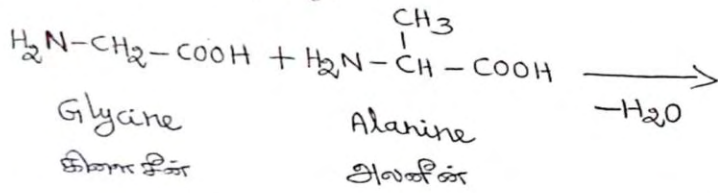 CH3
H2N-CH2-COOH + H2N-CH-COOH
-H2O
Glycine Alanine
கிளைசீன் அலனீன்